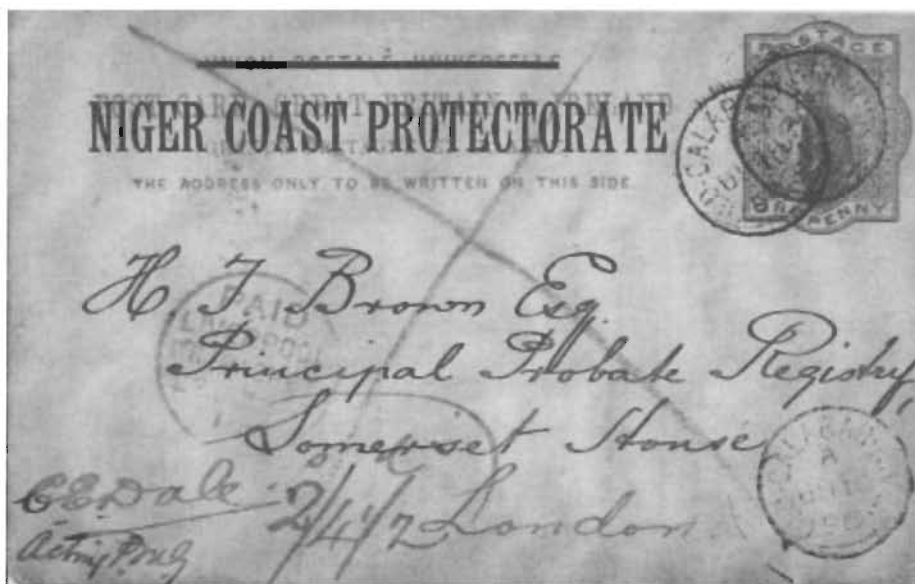 UNION POSTALE UNIVERSELLE
POST CARD GREAT BRITAIN & IRELAND
NIGER COAST PROTECTORATE
THE ADDRESS ONLY TO BE WRITTEN ON THIS SIDE
POSTAGE
ONE PENNY
CALABAR
H. J. Brown Esq.
PAID
LIVERPOOL
Principal Probate Registry,
Somerset House
London
C.E. Dale
Acting P.M.G